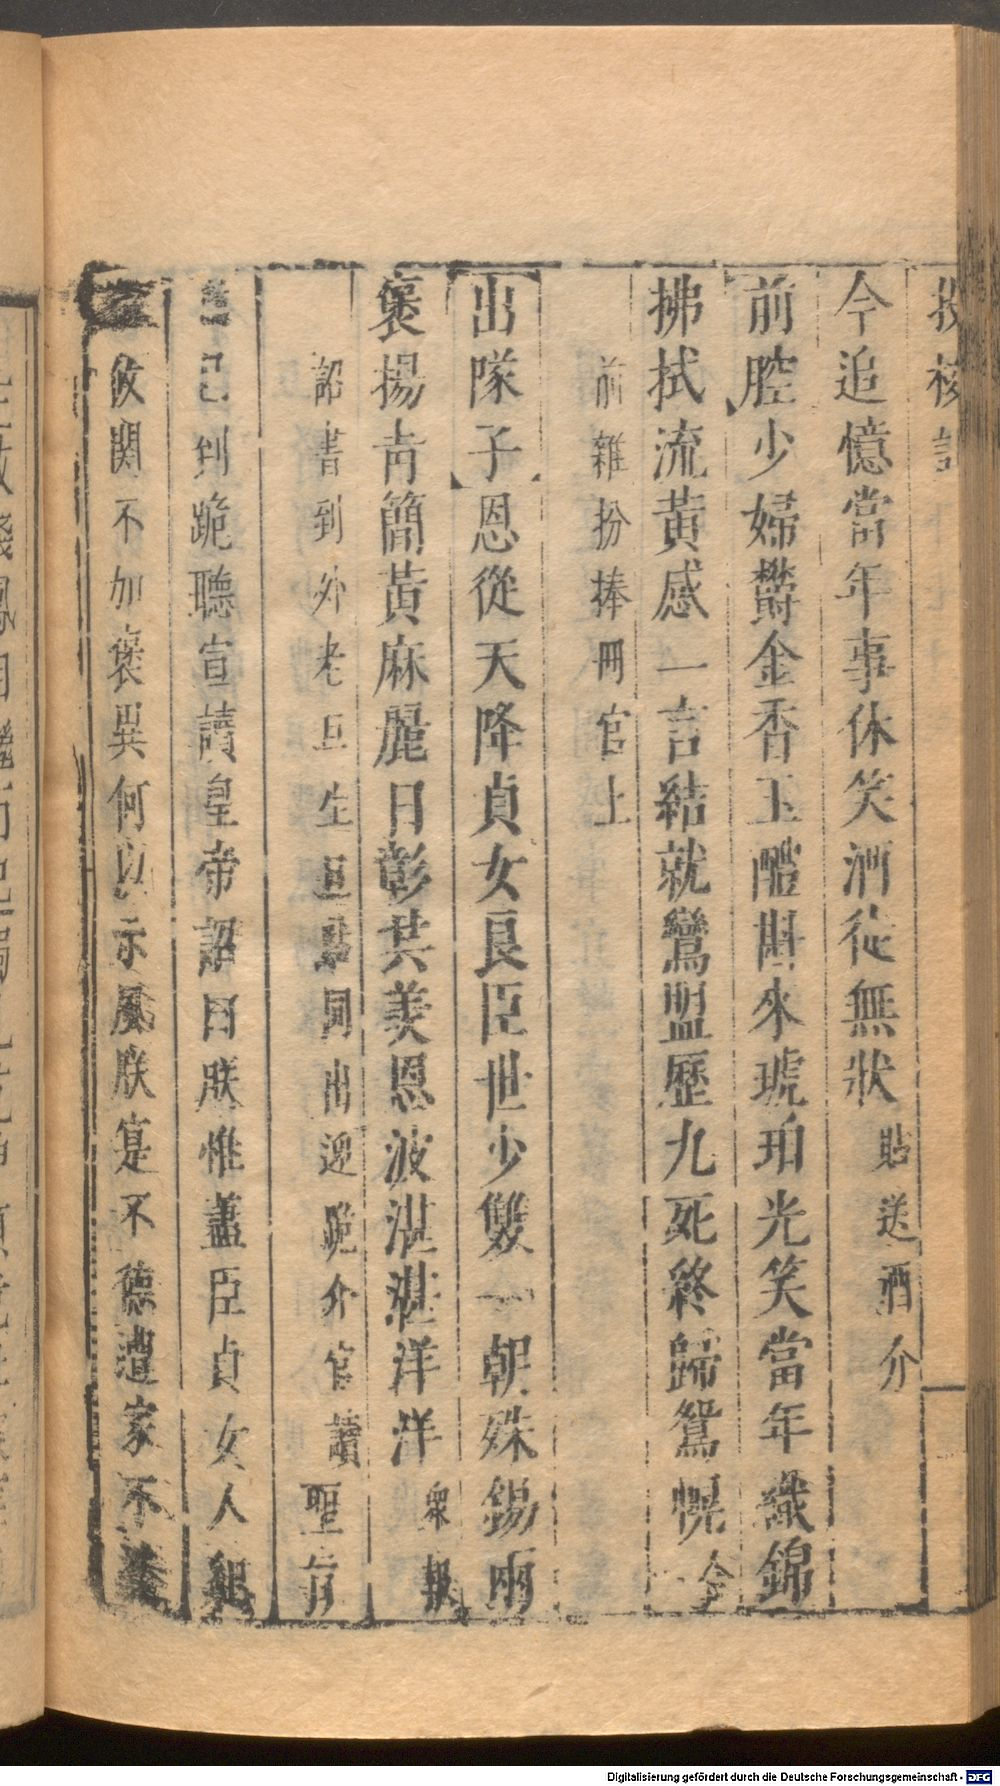 投梭記
今追憶當年事休笑酒徒無狀貼送酒介
前腔少婦鬱金香玉醴斟來琥珀光笑當年織錦
拂拭流黃感一言結就鸞盟歷九死終歸鴛幌合
前雜扮捧冊官上
出隊子恩從天降貞女良臣世少雙一朝殊錫兩
褒揚靑簡黃麻麗日彰共羨恩波湛湛洋洋衆報
詔書到外老旦生旦同出迎跪介官讀聖旨
已到跪聽宣讀皇帝詔曰朕惟藎臣貞女人紀
攸関不加褒異何以示風朕寔不德遭家不
Digitalisierung gefördert durch die Deutsche Forschungsgemeinschaft - DFG